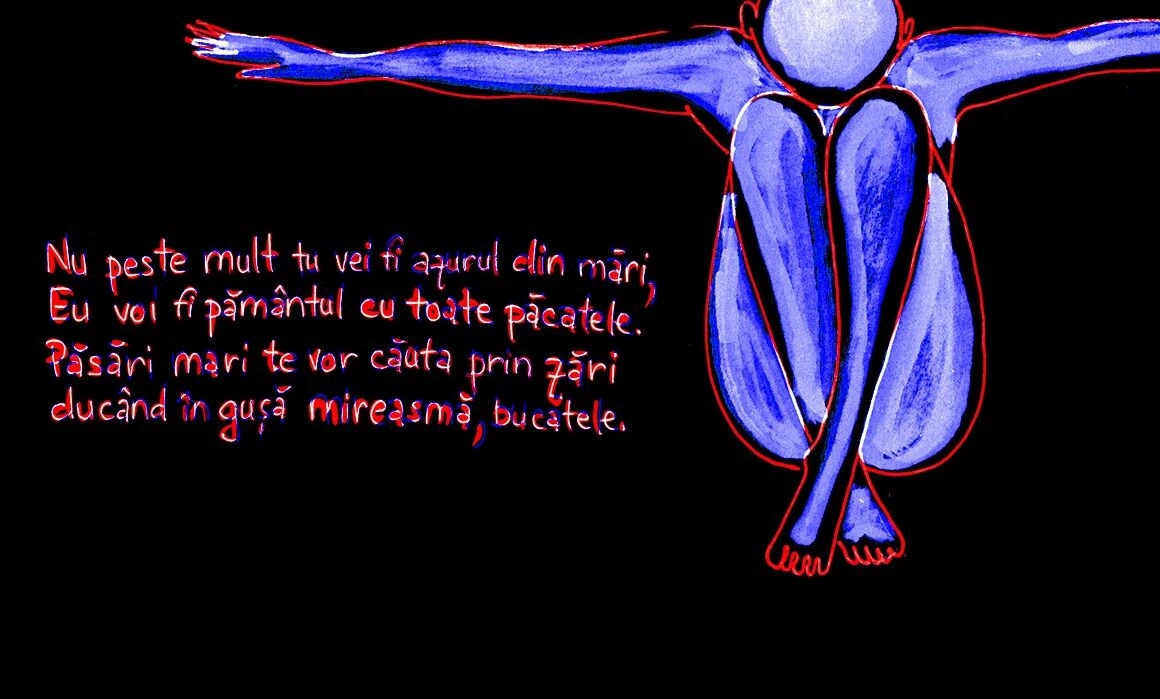 Nu peste mult tu vei fi azurul din mări,
Eu voi fi pământul cu toate păcatele.
Păsări mari te vor căuta prin zări
ducând în gușă mireasmă, bucatele.